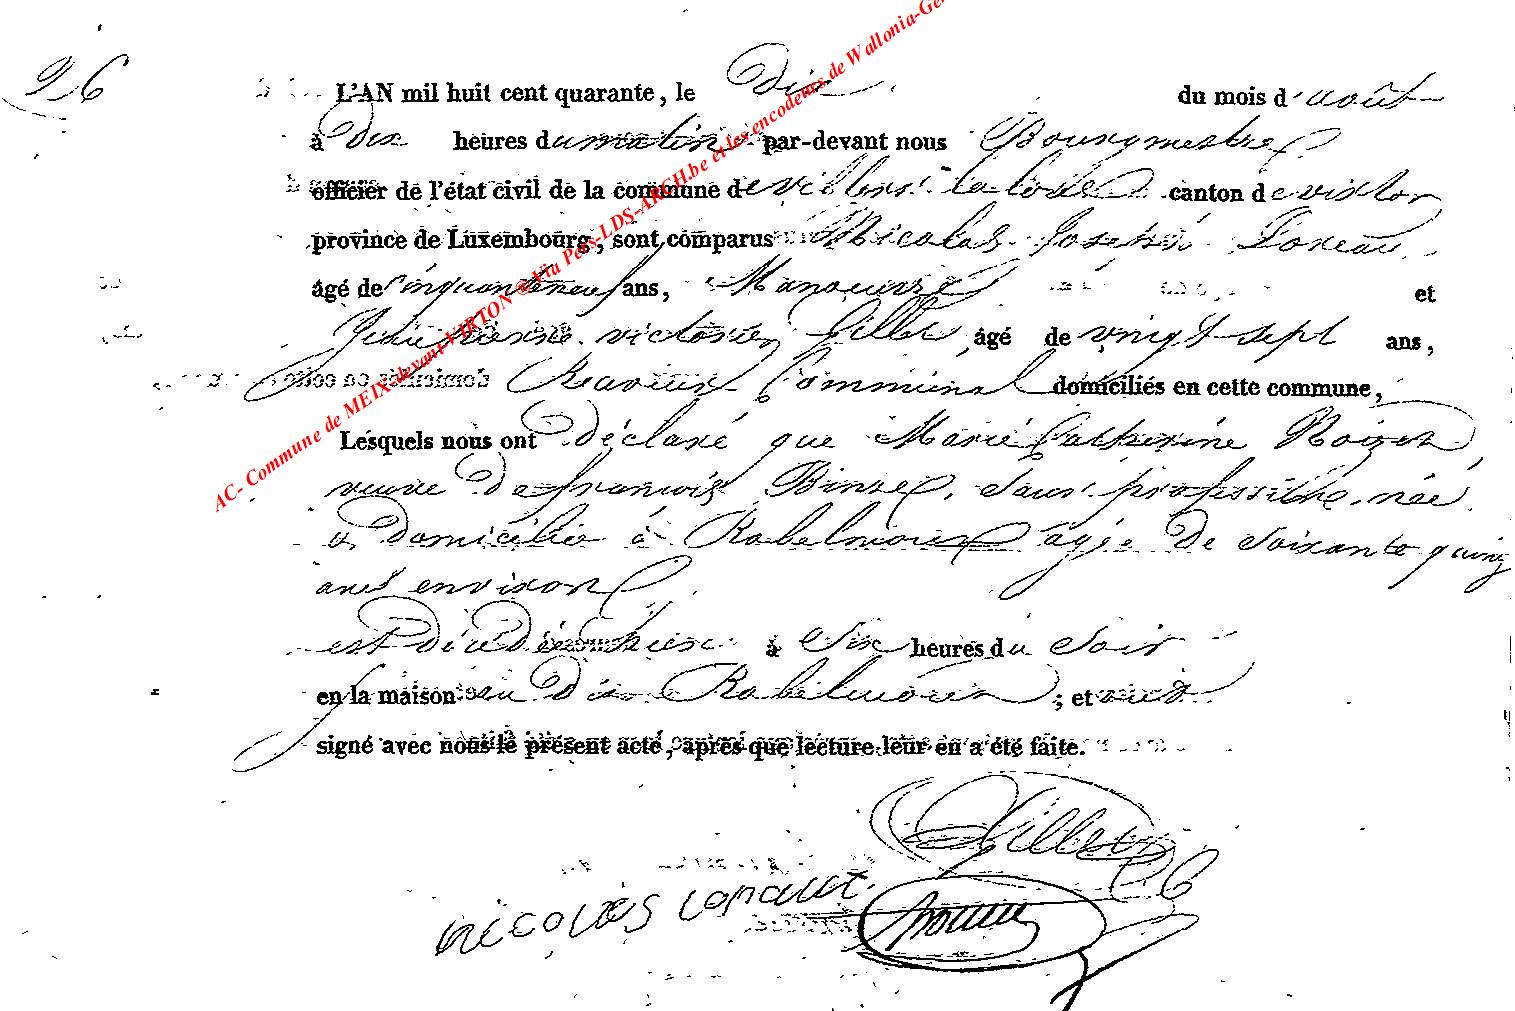 26
L'AN mil huit cent quarante, le Dix du mois d'août
à Dix heures du matin par-devant nous Bourgmestre
officier de l'état civil de la commune de villers la loue canton de virton
province de Luxembourg, sont comparus Nicolas Joseph Loreau
âgé de cinquante neuf ans, Manouvre et
Jean pierre victorien Gillet âgé de vingt sept ans,
Receveur Communal domiciliés en cette commune,
Lesquels nous ont déclaré que Marie Catherine Roizet
veuve de françois Binsse, sans profession née
& domicilié à Robelmour agée de soixante quinze
ans environ
est décédée hier à Six heures du Soir
en la maison au dit Robelmour ; et ont
signé avec nous le présent acte, après que lecture leur en a été faite.
Gillet
nicolas Loraux
AC- Commune de MEIX-devant-VIRTON @ Via Pers-LDS-ARCH.be et les encodeurs de Wallonia-Ge